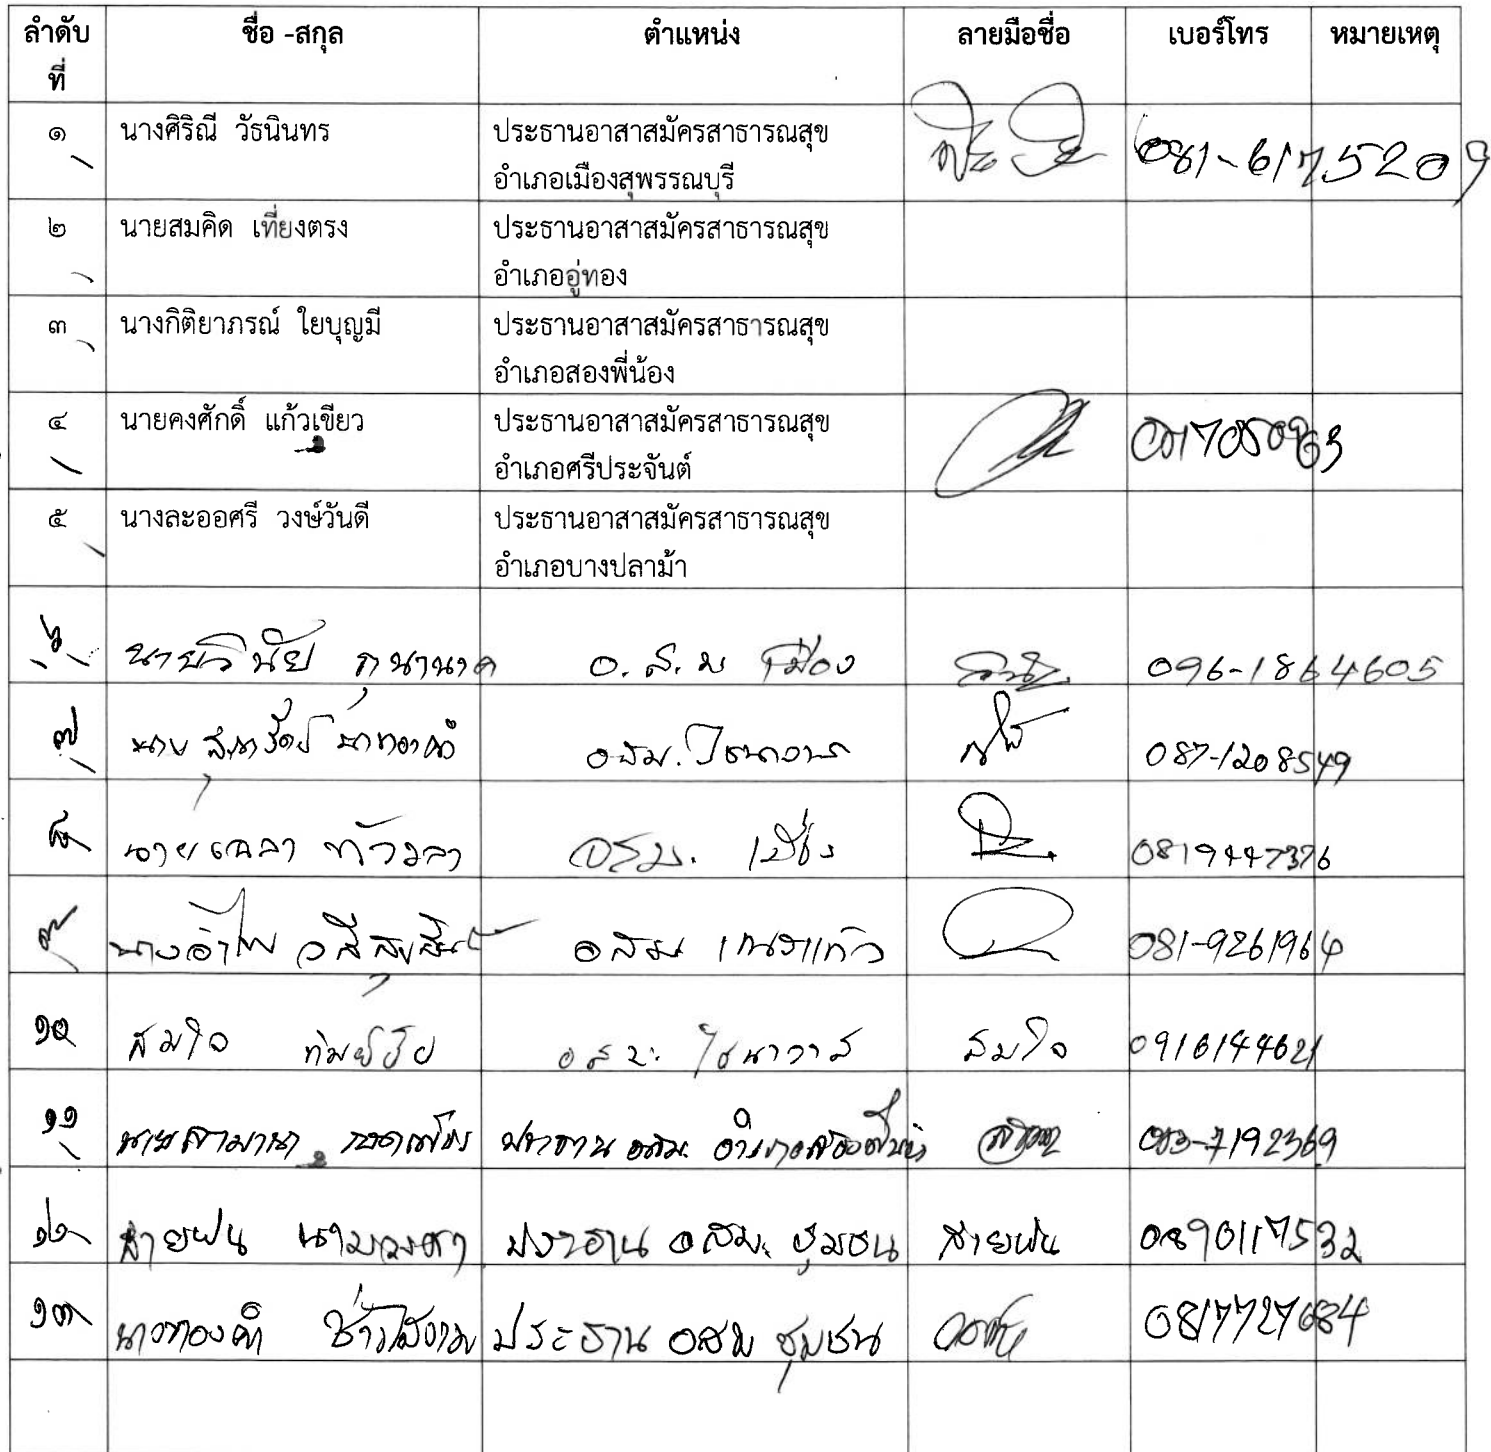 ลำดับ ชื่อ -สกุล ตำแหน่ง ลายมือชื่อ เบอร์โทร หมายเหตุ
ที่
๑ นางศิริณี วัธนินทร ประธานอาสาสมัครสาธารณสุข 081-6175209
อำเภอเมืองสุพรรณบุรี
๒ นายสมคิด เที่ยงตรง ประธานอาสาสมัครสาธารณสุข
อำเภออู่ทอง
๓ นางกิติยาภรณ์ ใยบุญมี ประธานอาสาสมัครสาธารณสุข
อำเภอสองพี่น้อง
๔ นายคงศักดิ์ แก้วเขียว ประธานอาสาสมัครสาธารณสุข
อำเภอศรีประจันต์
๕ นางละออศรี วงษ์วันดี ประธานอาสาสมัครสาธารณสุข
อำเภอบางปลาม้า
๖ นายวินัย อ.ส.ม เมือง 096-1864605
๗ นาย อสม. 087-1208549
๘ นาย อสม. เมือง 0819447376
๙ นางอำไพ อสม เณรแก้ว 081-9261964
๑๐ สมใจ อสม. ไชนาวาส สมใจ 0916144621
๑๑ ประธาน อสม. อำเภอสองพี่น้อง 083-7192369
๑๒ สายฝน ประธาน อสม. ชุมชน สายฝน 0890117532
๑๓ นางทองคำ ประธาน อสม ชุมชน 0817727684